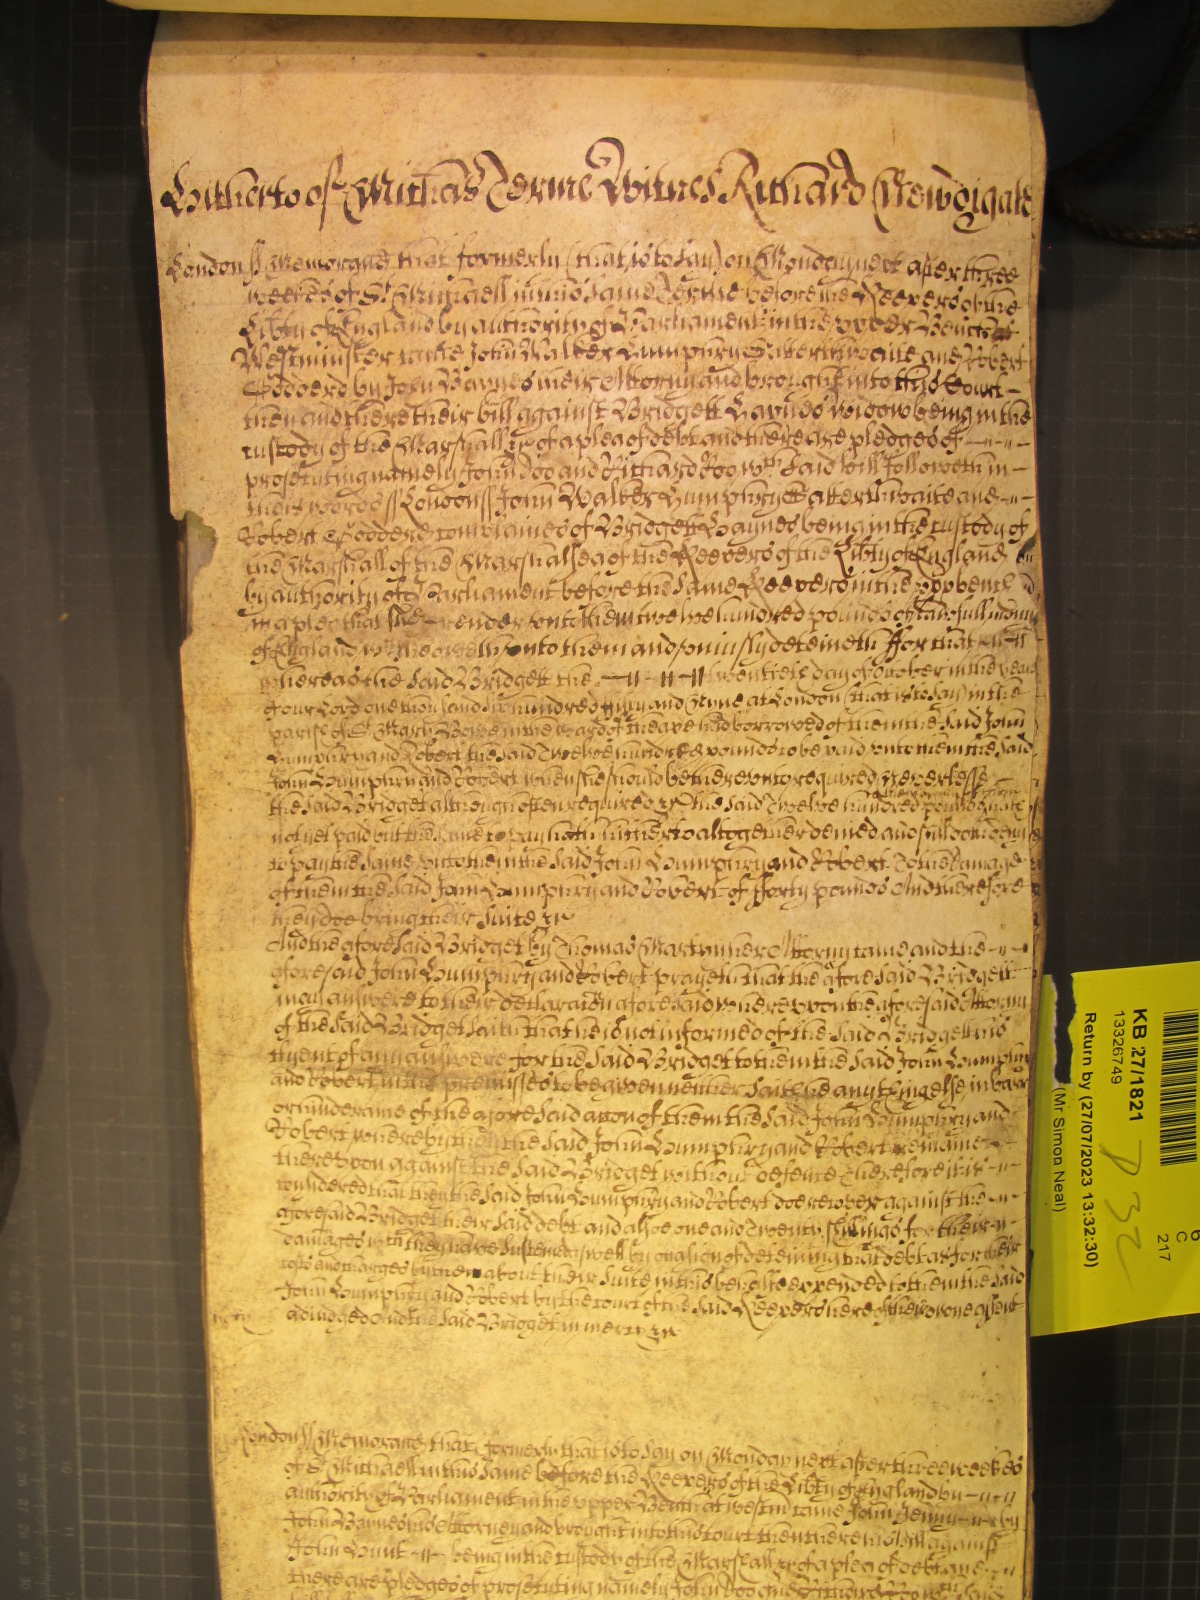 Hitherto of Michas Terme Witnes Richard Newdigate
London ss Memorand that formerly (that is to say) on Monday next after three
weekes of St Michaell in this same Terme before the Keepers of the
Libty of England by authority of Parliament in the upper Bench att
Westminster came John Walker Humphry Satterthwaite and Robert
by John Baynes their Attorny and brought into this Court
then and there their bill against Bridgett Haynes widow being in the
custody of the Marshall &c of a plea of debt and there are pledges of
prosecuting namely John Doo and Richard Roo wch said bill followeth in
theis words ss London ss John Walker Humphry Satterthwaite and
Robert complaines of Bridgett Haynes being in the custody of
the Marshall of the Marshalsea of the Keepers of the Libty of England
by authority of Parliament before the same Keepers in the upp bench
in a plea that she render unto them twelve hundred pounds of lawfull money
of England wch she oweth unto them and uniustly deteineth ffor that
whereas the said Bridgett the twentieth day of October in the yeare
of our Lord one thousand six hundred fifty and Nyne at London (that is to say) in the
parish of St Mary Bowe in the ward of Cheape had borrowed of them the said John
Humphry and Robert the said Twelve hundred pounds to be paid unto them the said
John Humphry and Robert when she should be thereunto required Neverthelesse
the said Bridget although often required &c the said Twelve hundred pounds
not yet paid but the same to pay hath hitherto altogether denied and still doth deny
to pay the same unto them the said John Humphry and Robert To the damage
of them the said John Humphry and Robert of fforty pounds And therefore
they doe bring their suite &c
And the aforesaid Bridget by Thomas Martyn her Attorny came and the
aforesaid John Humphry and Robert prayeth that the aforesaid Bridgett
may answere to their declaracion aforesaid whereupon the aforesaid Attorny
of the said Bridget saith that he is not informed of the said Bridgett his
Clyent of any answere for the said Bridget to them the said John Humphry
and Robert in the premisses to be given neither saith he any thing else in barr
or in of the aforesaid accon of them the said John Humphry and
Robert whereby they the said John Humphry and Robert remaine
thereupon against the said Bridget without defence Therefore it is
considered that they the said John Humphry and Robert doe recover against the
aforesaid Bridget their said debt and alsoe one and twenty shillings for their
damages wch they have susteined aswell by occasion of deteining that debt as for their
costs and charges by them about their suite in this behalfe expended to them the said
John Humphry and Robert by the court of the said Keepers here of their owne assent
adiudged And the said Bridget in mercy &c
London ss Memorand that formerly that is to say on Monday next after three weekes
of St Michaell in this same before the Keepers of the Libty of England by
authority of Parliament in the upper Bench at Westm came John by
John Baynes his Attorney and brought into this Court then there his bill against
John Hunt being in the custody of the Marshall &c of a plea of debt and
there are pledges of prosecuting namely John Doo and Richard Roo
KB 27/1821
13326749
Return by (27/07/2023 13:32:30)
(Mr Simon Neal)
C
217